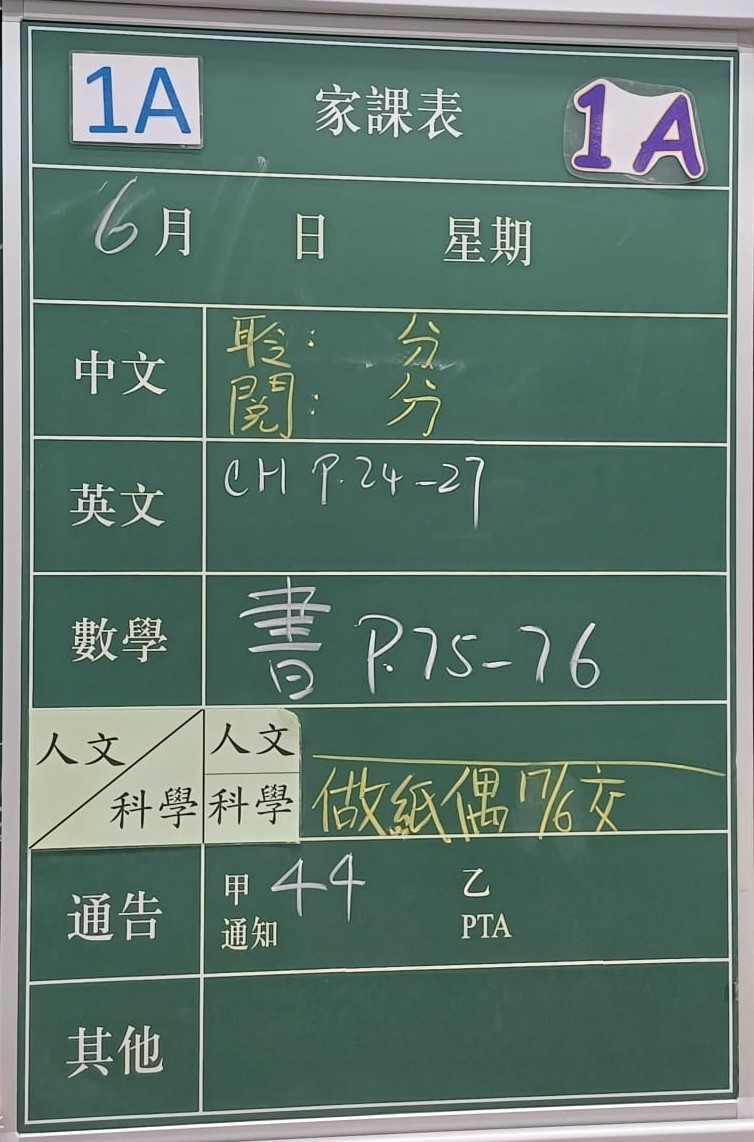 1A 家課表 1A
6月 日 星期
中文 聆: 分
閱: 分
英文 CH P.24-27
數學 書 P.75-76
人文/科學 人文
科學 做紙偶 17/6交
通告 甲 44 乙
通知 PTA
其他